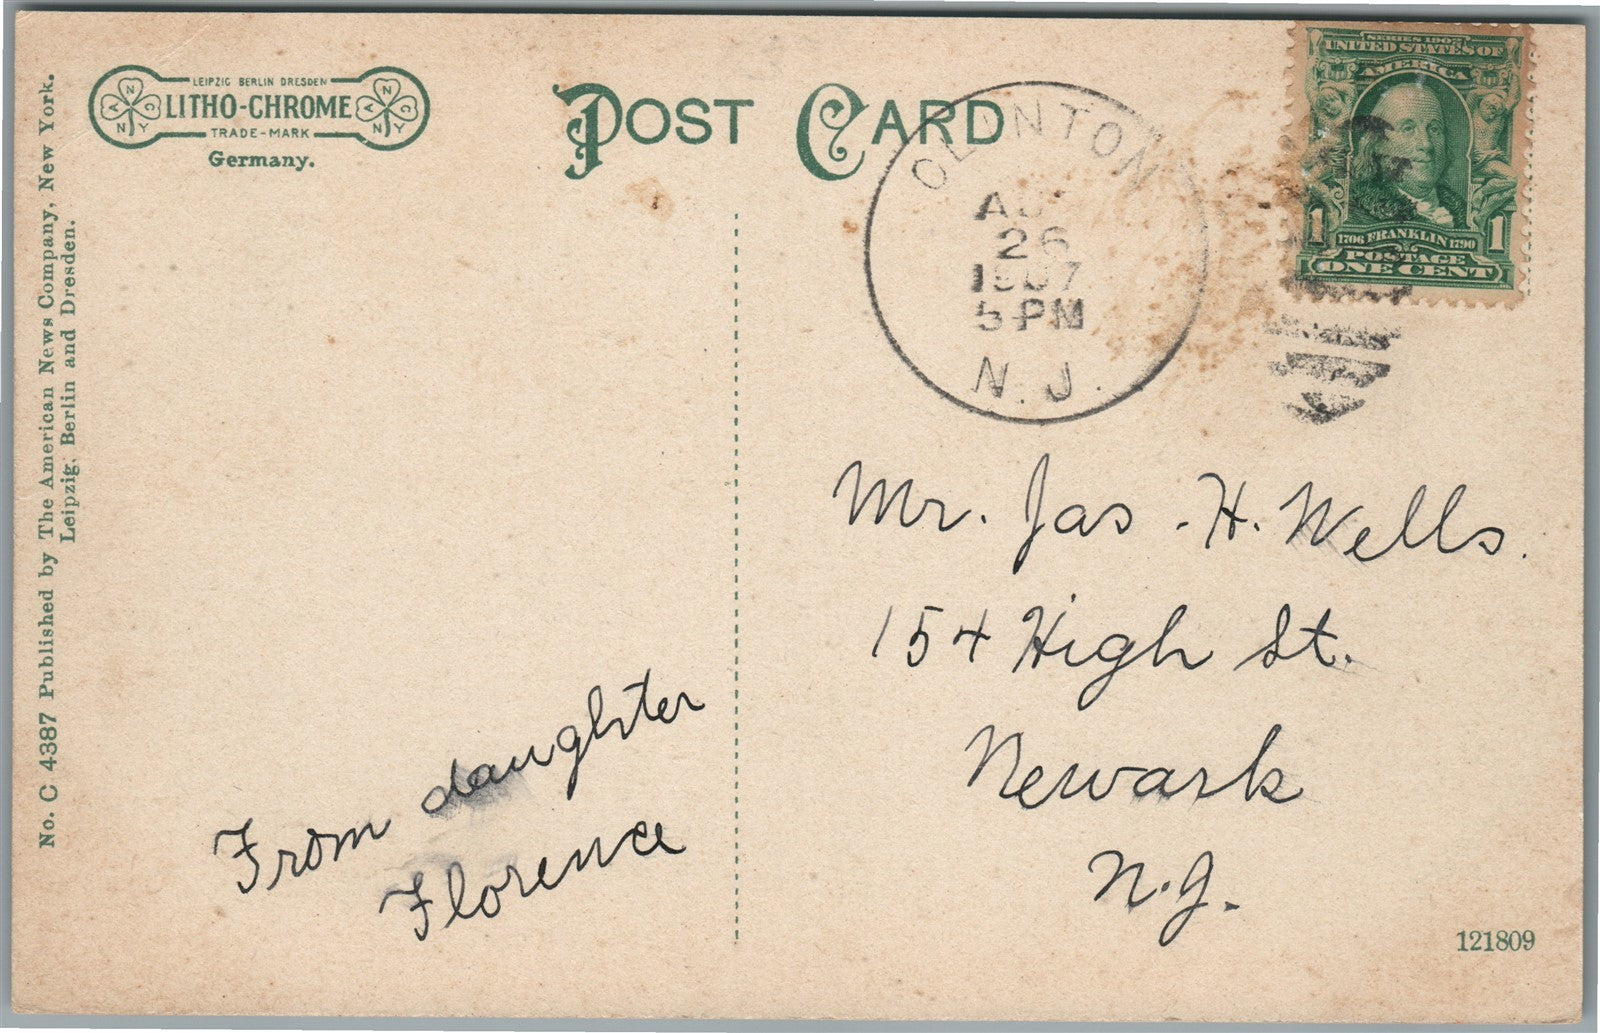 LEIPZIG BERLIN DRESDEN
LITHO-CHROME
TRADE-MARK
Germany.
ANCNY
ANCNY
POST CARD
No. C 4387 Published by The American News Company, New York.
Leipzig, Berlin and Dresden.
CLINTON
26
1907
5-PM
N.J.
SERIES 1902
UNITED STATES OF
AMERICA
1 1
1706 FRANKLIN 1790
POSTAGE
ONE CENT
Mr. Jas. H. Wells.
154 High St.
Newark
N.J.
From daughter
Florence
121809